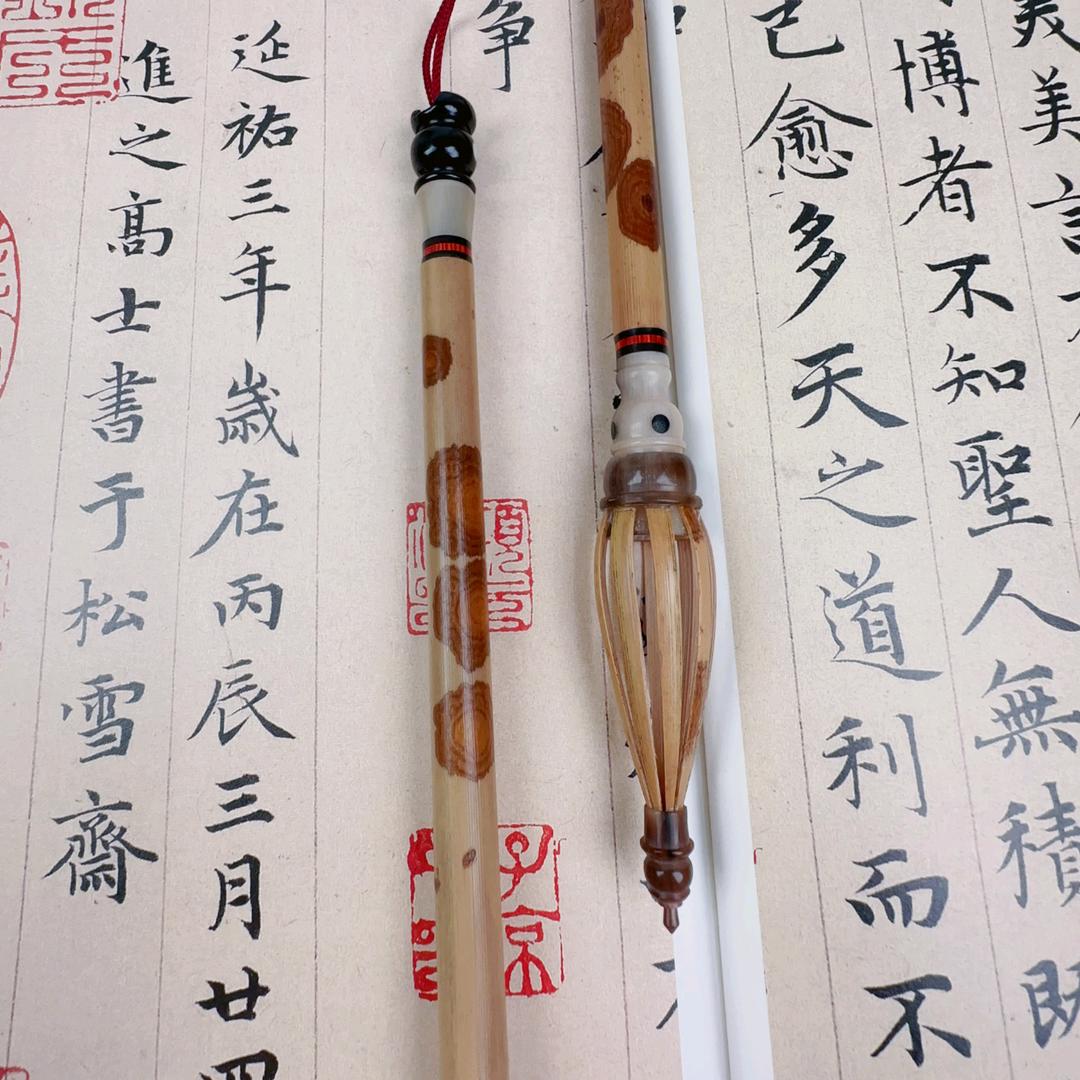 美美言
博者不知聖人無積既
己愈多天之道利而不
争
延祐三年歳在丙辰三月廿四
進之髙士書于松雪齋
子京